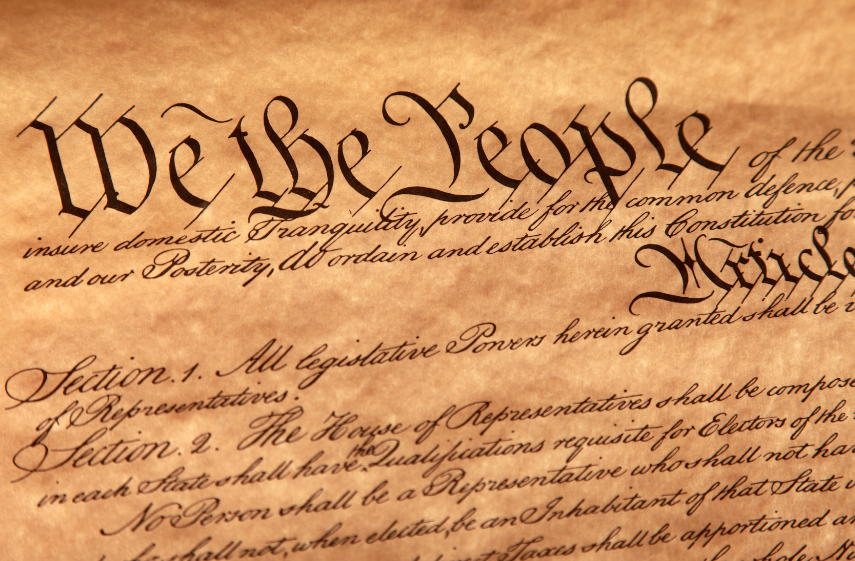 We the People of the
insure domestic Tranquility, provide for the common defence,
and our Posterity, do ordain and establish this Constitution fo
Article
Section. 1. All legislative Powers herein granted shall be
of Representatives.
Section. 2. The House of Representatives shall be compose
in each State shall have the Qualifications requisite for Electors of the
No Person shall be a Representative who shall not hav
shall not, when elected, be an Inhabitant of that State
Taxes shall be apportioned